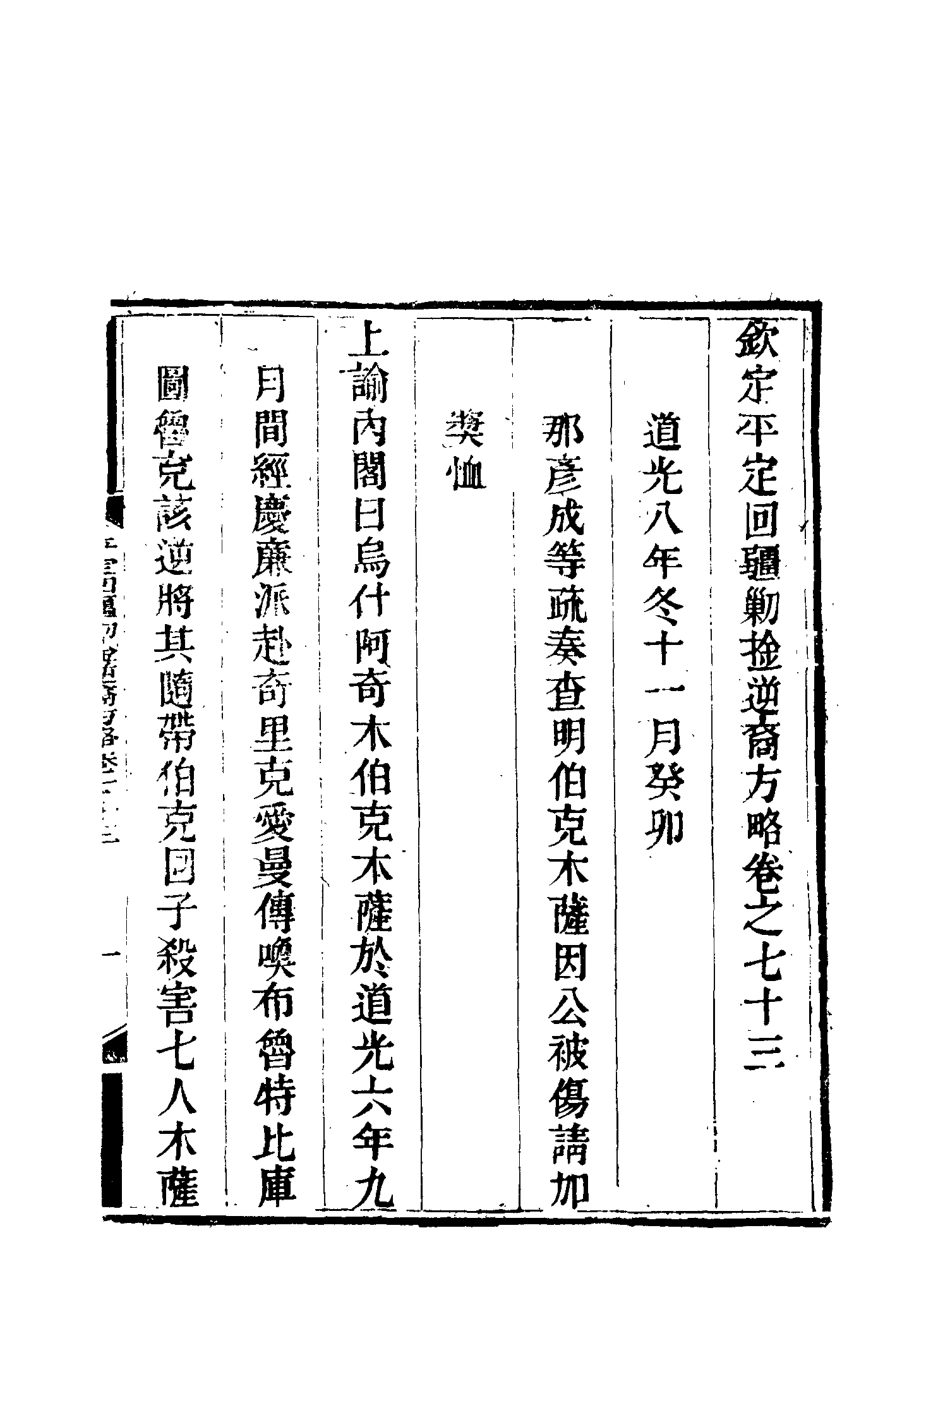 欽定平定回疆剿捦逆裔方略卷之七十三
道光八年冬十一月癸卯
那彥成等疏奏查明伯克木薩因公被傷請加
獎恤
上諭內閣曰烏什阿奇木伯克木薩於道光六年九
月間經慶廉派赴奇里克愛曼傳喚布魯特比庫
圖魯克該逆將其隨帶伯克回子殺害七人木薩